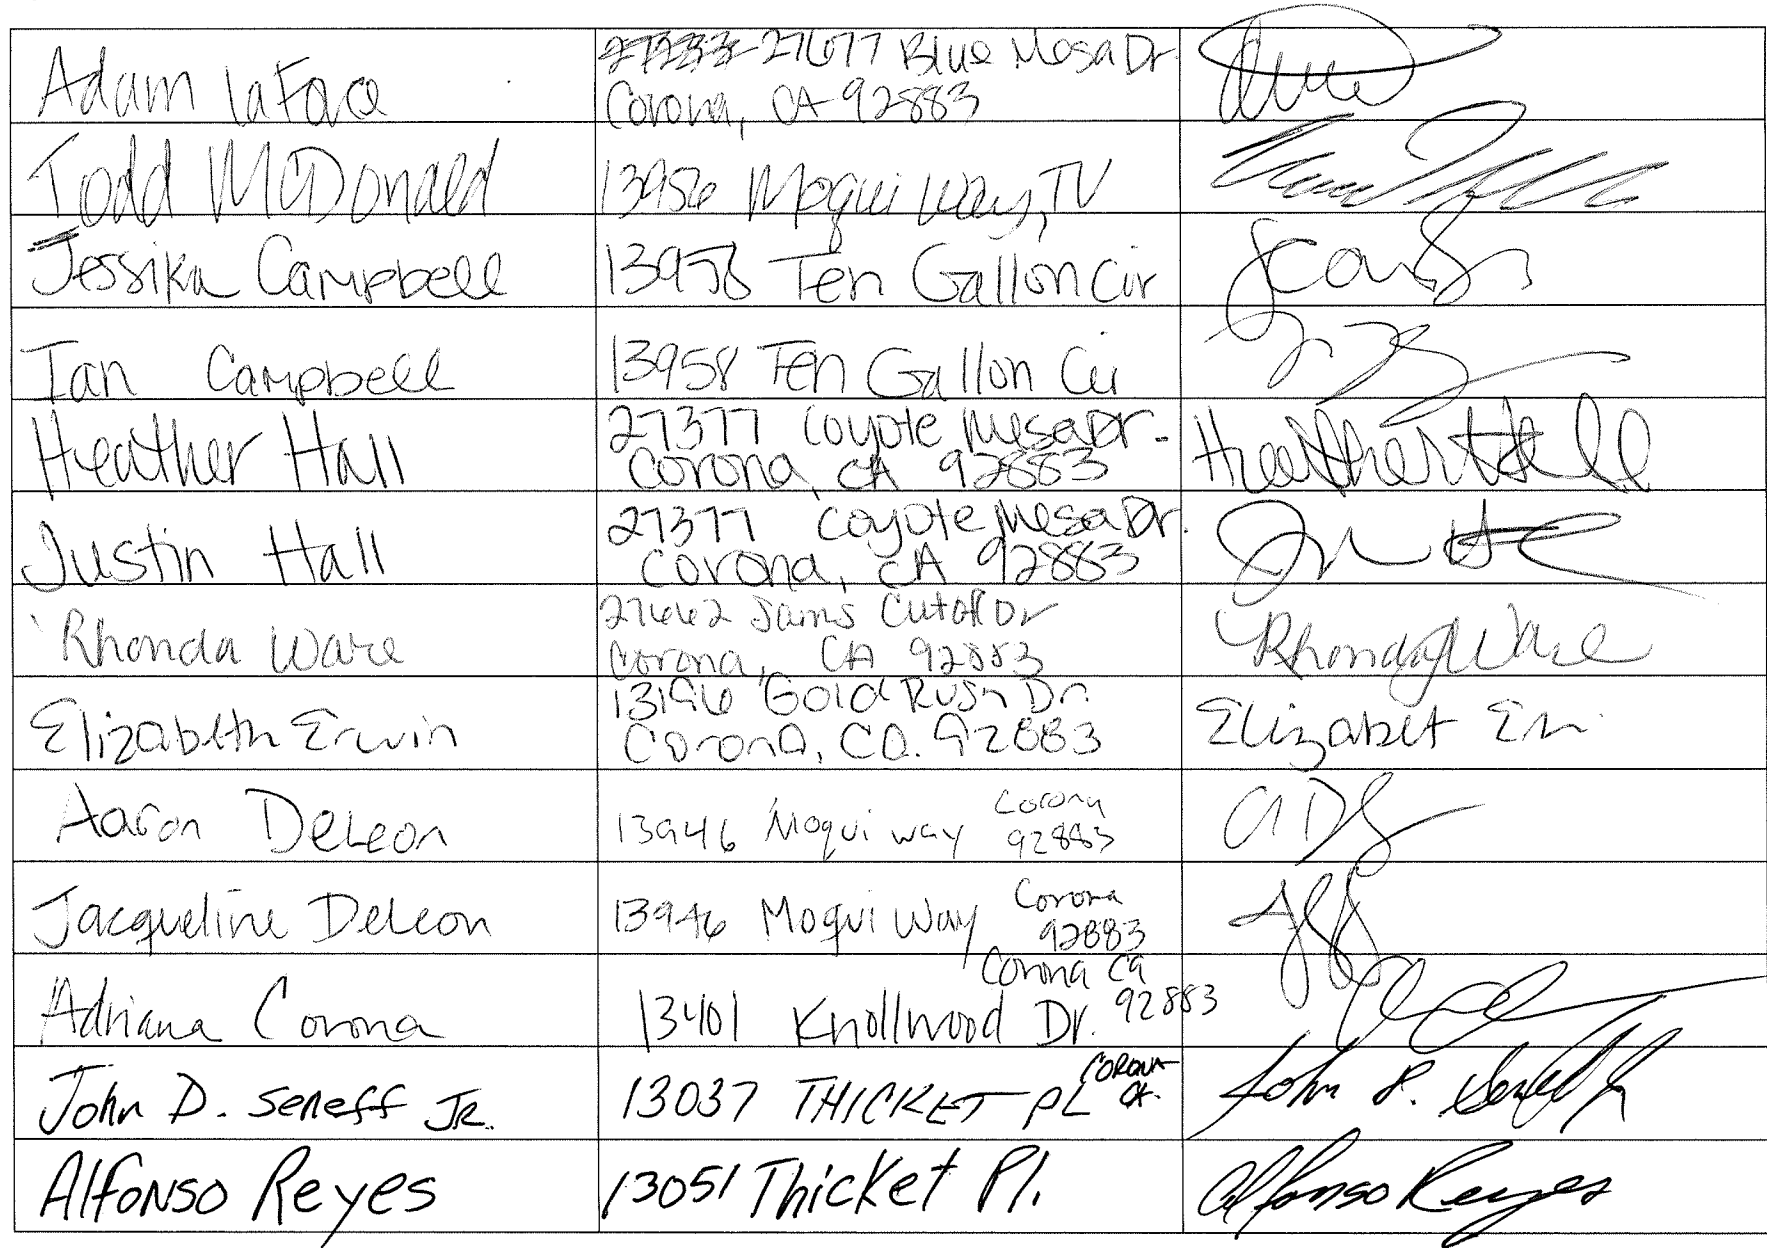 Adam LaFace
27677 Blue Mesa Dr
Corona, CA 92883
Todd McDonald
13956 Moqui Way, TV
Jessika Campbell
13958 Ten Gallon Cir
Ian Campbell
13958 Ten Gallon Cir
Heather Hall
27377 Coyote Mesa Dr.
Corona, CA 92883
Heather Hall
Justin Hall
27377 Coyote Mesa Dr.
Corona, CA 92883
Rhonda Ware
27662 Sams Cutoff Dr
Corona, CA 92883
Rhonda Ware
Elizabeth Erwin
13196 Gold Rush Dr.
Corona, CA. 92883
Aaron DeLeon
13946 Moqui way Corona
92883
Jacqueline DeLeon
13946 Moqui Way Corona
92883
Adriana Corona
13401 Knollwood Dr. Corona Ca
92883
John D. Seneff Jr.
13037 THICKET PL CORONA
CA.
Alfonso Reyes
13051 Thicket Pl.
Alfonso Reyes